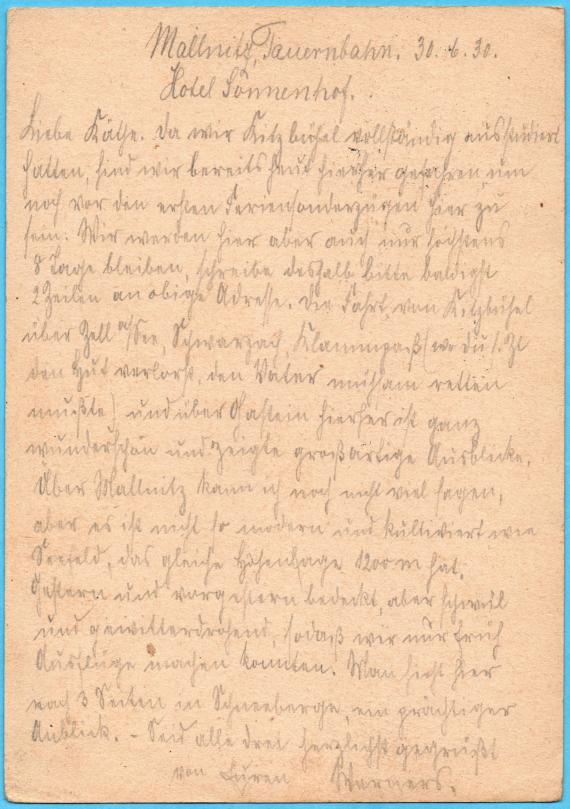 Mallnitz, Tauernbahn. 30.6.30.
Hotel Sonnenhof.
Liebe Käthe. Da wir Kitzbühel vollständig ausstudiert
hatten, sind wir bereits heut hierher gefahren, um
noch vor den ersten Feriensonderzügen hier zu
sein. Wir werden hier aber auch nur höchstens
8 Tage bleiben, schreibe deshalb bitte baldigst
2 Zeilen an obige Adresse. Die Fahrt von Kitzbühel
über Zell a/See, Schwarzach, Klammpaß (wo Du s. Zt
den Hut verlorst, den Vater mühsam retten
mußte) und über Gastein hierher ist ganz
wunderschön und zeigte großartige Ausblicke.
Über Mallnitz kann ich noch nicht viel sagen,
aber es ist nicht so modern und kultiviert wie
Seefeld, das gleiche Höhenlage 1200 m hat.
Gestern und vorgestern bedeckt, aber schwül
und gewitterdrohend, sodaß wir nur früh
Ausflüge machen konnten. Man sieht hier
nach 3 Seiten in Schneeberge, ein prächtiger
Anblick. - Seid alle drei herzlichst gegrüßt
von Euren Werners.